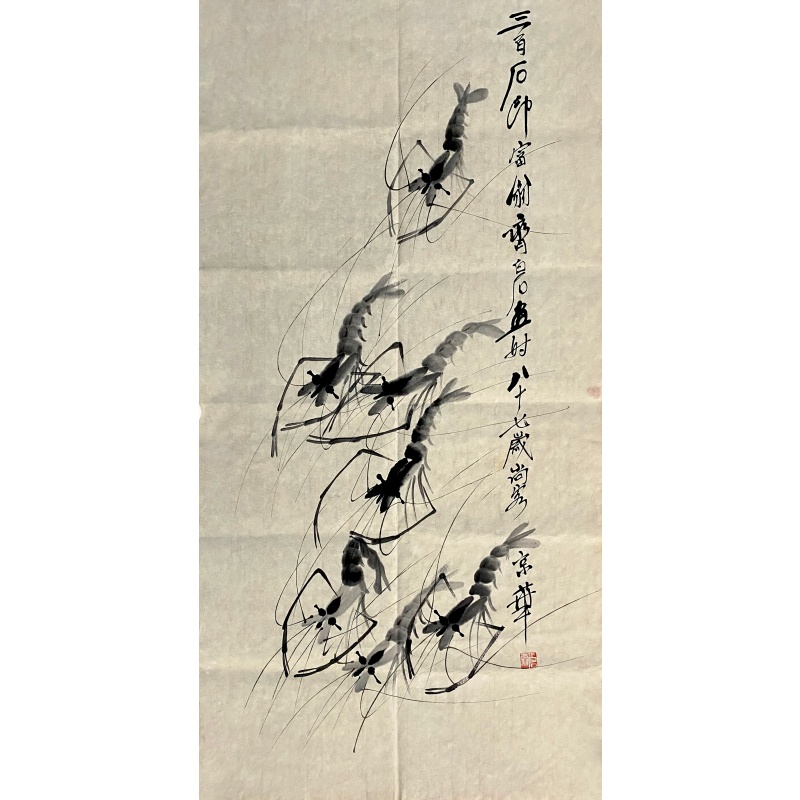 三百石印富翁齊白石畫時八十七歲尚客京華